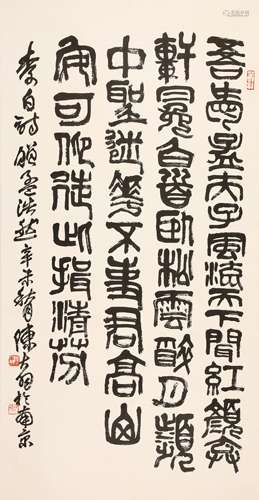 吾愛孟夫子風流天下聞紅顏棄
軒冕白首臥松雲醉月頻
中聖迷花不事君高山
安可仰徒此揖清芬
李白詩贈孟浩然辛未陳大羽於南京